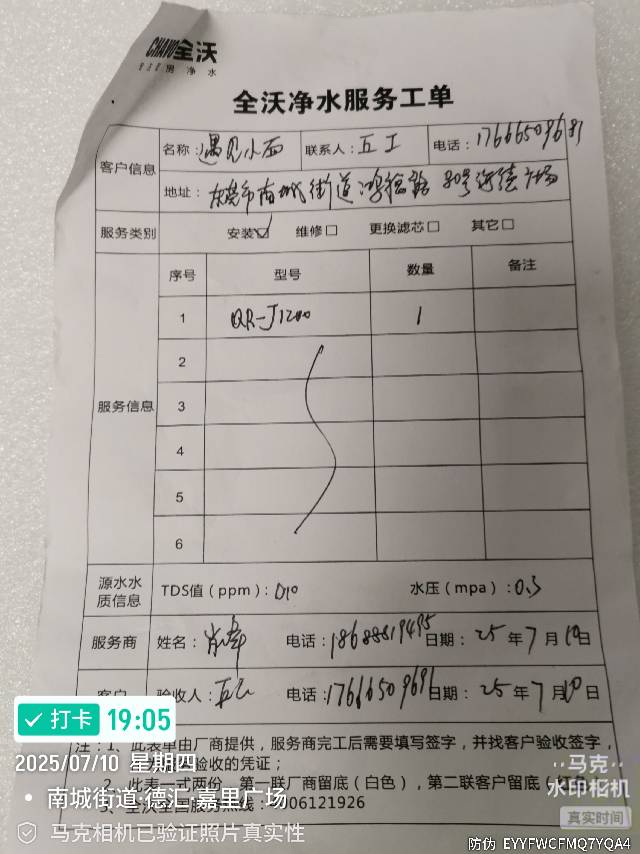 CHAVO全沃
净水
全沃净水服务工单
客户信息 名称：遇见小面 联系人：五工 电话：17666509691
地址：东莞市南城街道鸿福路80号 广场
服务类别 安装☑ 维修□ 更换滤芯□ 其它□
服务信息 序号 型号 数量 备注
1 QR-J1200 1
2
3
4
5
6
源水水质信息 TDS值（ppm）：010 水压（mpa）：0.3
服务商 姓名： 电话：18688819495 日期：25年7月10日
客户 验收人： 电话：17666509691 日期：25年7月10日
注：1、此表单由厂商提供，服务商完工后需要填写签字，并找客户验收签字，
验收的凭证；
2、此表一式两份，第一联厂商留底（白色），第二联客户留底（红色）
3、全沃全国服务热线：4006121926
打卡 19:05
2025/07/10 星期四
南城街道·德汇·嘉里广场
马克相机已验证照片真实性
马克
水印相机
真实时间
防伪 EYYFWCFMQ7YQA4